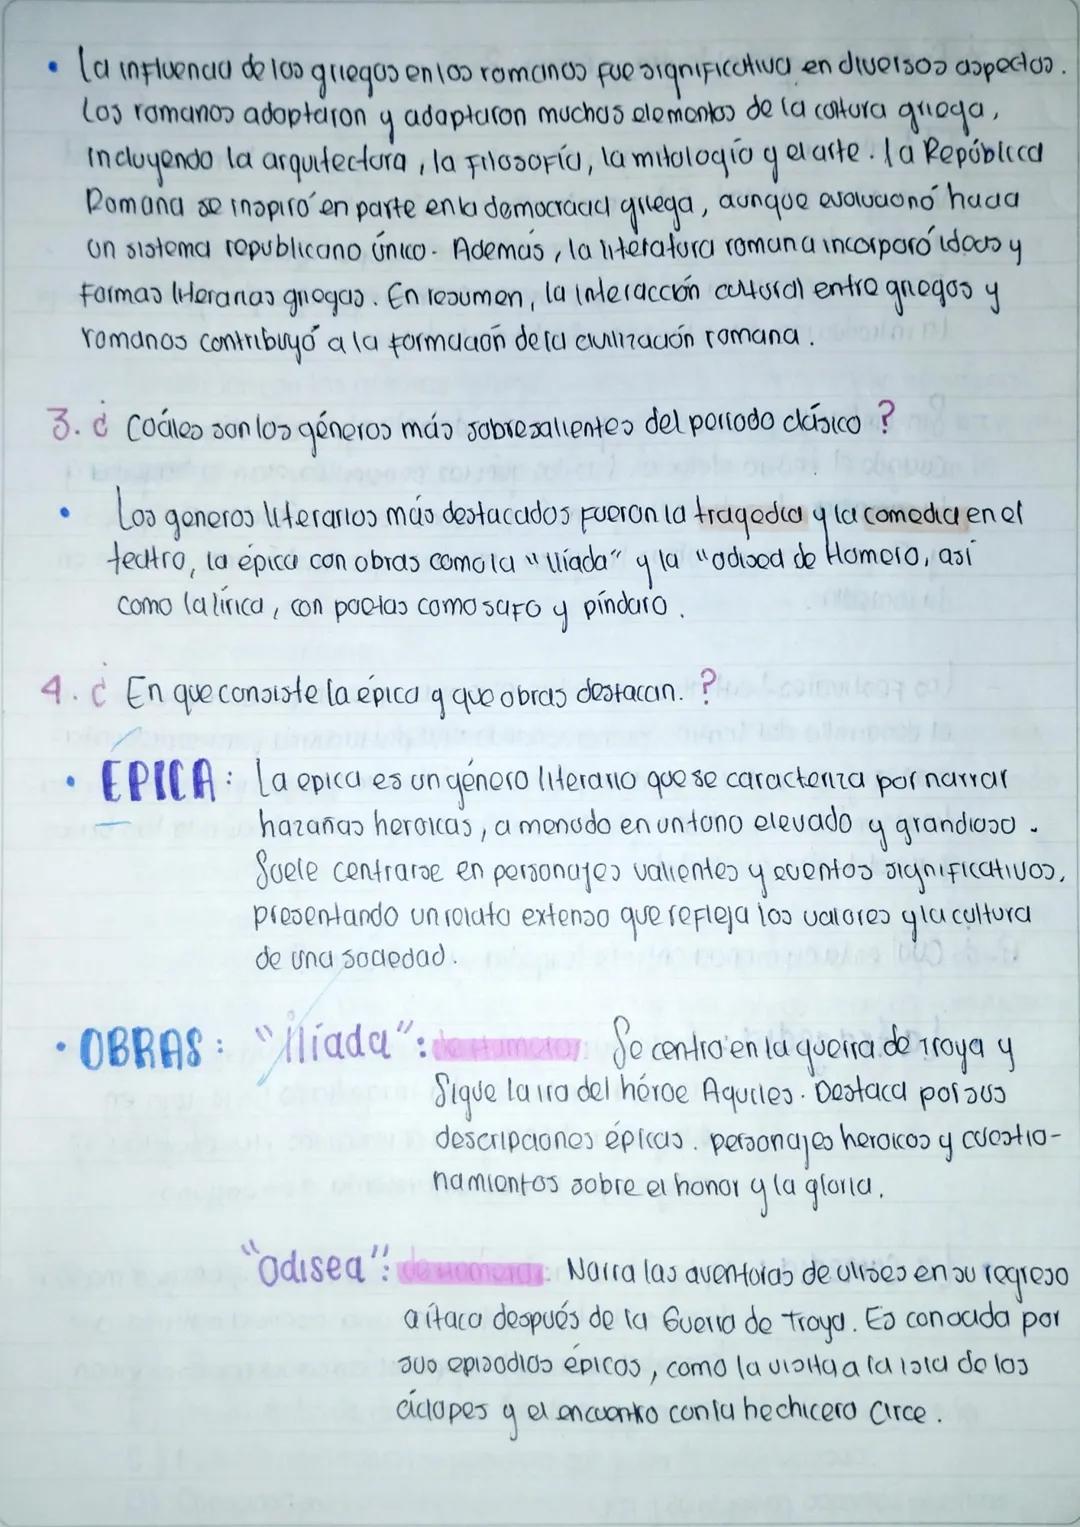 • La influencia de los griegos en los romanos fue significativa en diversos aspectos.
Los romanos adoptaron y adaptaron muchos elementos de la cultura griega,
incluyendo la arquitectura, la filosofía, la mitología y el arte. La República
Romana se inspiró en parte en la democracia griega, aunque evolucionó hacia
un sistema republicano único. Además, la literatura romana incorporó ideas y
formas literarias griegas. En resumen, la interacción cultural entre griegos y
romanos contribuyó a la formación de la civilización romana.
3. ¿Cuáles son los géneros más sobresalientes del periodo clásico?
• Los generos literarios más destacados fueron la tragedia y la comedia en el
teatro, la épica con obras como la "Ilíada" y la "odisea de Homero, así
como la lírica, con poetas como safo y píndaro.
4. ¿En que consiste la épica y que obras destacan.?
• EPICA: La epica es un género literario que se caracteriza por narrar
hazañas heroicas, a menudo en un tono elevado y grandioso.
Suele centrarse en personajes valientes y eventos significativos,
presentando un relato extenso que refleja los valores y la cultura
de una sociedad.
• OBRAS: "ilíada": de Homero: Se centra en la guerra de Troya y
Sigue la ira del héroe Aquiles. Destaca por sus
descripciones épicas. personajes heroicos y cuestio-
namientos sobre el honor y la gloria.
"odisea": de Homero: Narra las aventuras de ulises en su regreso
a ítaca después de la Guerra de Troya. Es conocida por
sus episodios épicos, como la visita a la isla de los
cíclopes y el encuentro con la hechicera Circe.